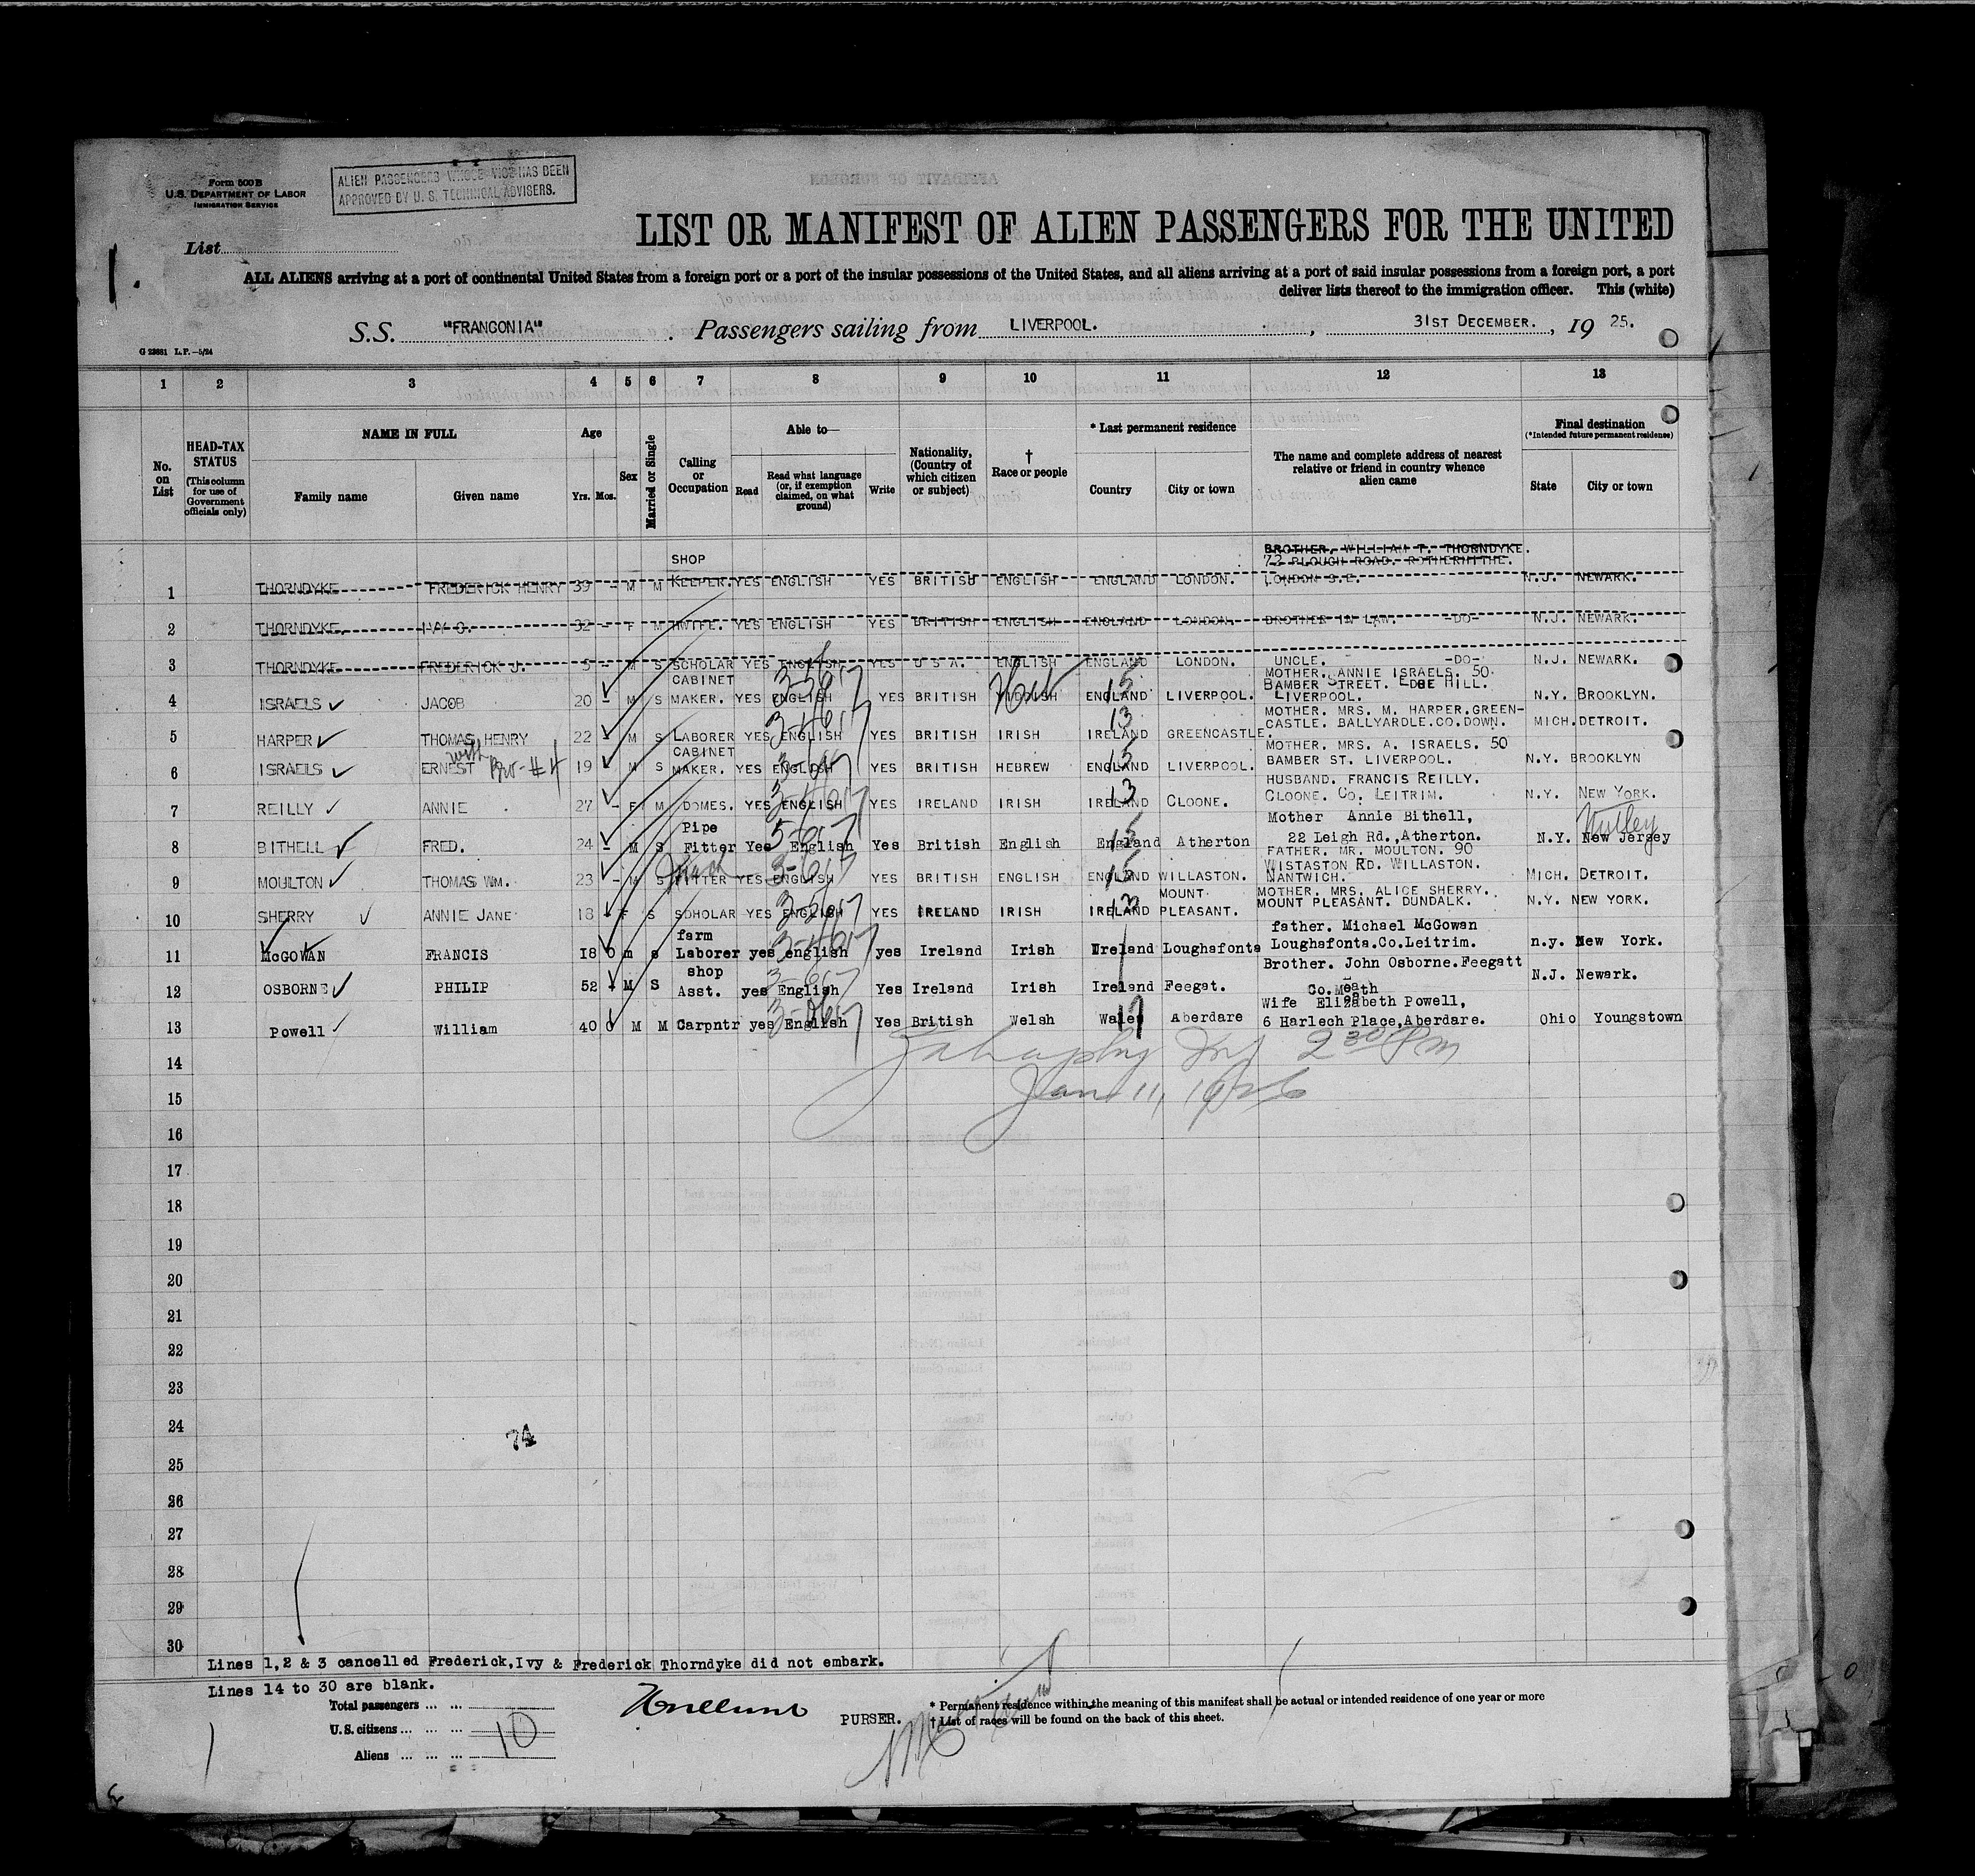 Form 500 B
U.S. DEPARTMENT OF LABOR
IMMIGRATION SERVICE
ALIEN PASSENGERS WHOSE VISE HAS BEEN
APPROVED BY U. S. TECHNICAL ADVISERS.
List
1.
LIST OR MANIFEST OF ALIEN PASSENGERS FOR THE UNITED
ALL ALIENS arriving at a port of continental United States from a foreign port or a port of the insular possessions of the United States, and all aliens arriving at a port of said insular possessions from a foreign port, a port
deliver lists thereof to the immigration officer. This (white)
S.S. "FRANCONIA" . Passengers sailing from LIVERPOOL. , 31ST DECEMBER. , 19 25.
G 23681 L.P.—5/24
1 2 3 4 5 6 7 8 9 10 11 12 13
No. on List
HEAD-TAX STATUS (This column for use of Government officials only)
NAME IN FULL
Family name Given name
Age
Yrs. Mos.
Sex
Married or Single
Calling or Occupation
Able to—
Read Read what language (or, if exemption claimed, on what ground) Write
Nationality, (Country of which citizen or subject)
† Race or people
* Last permanent residence
Country City or town
The name and complete address of nearest relative or friend in country whence alien came
Final destination
(*Intended future permanent residence)
State City or town
BROTHER. WILLIAM T. THORNDYKE.
SHOP 72 PLOUGH ROAD. ROTHERHITHE.
1 THORNDYKE FREDERICK HENRY 39 - M M KEEPER. YES ENGLISH YES BRITISH ENGLISH ENGLAND LONDON. LONDON S.E. N.J. NEWARK.
2 THORNDYKE. IVY C. 32 - F M HWIFE. YES ENGLISH YES BRITISH ENGLISH ENGLAND LONDON. BROTHER IN LAW. -DO- N.J. NEWARK.
3 THORNDYKE FREDERICK J. 5 - M S SCHOLAR YES ENGLISH YES U S A. ENGLISH ENGLAND LONDON. UNCLE. -DO- N.J. NEWARK.
CABINET MOTHER. ANNIE ISRAELS. 50
BAMBER STREET. EDGE HILL.
4 ISRAELS JACOB 20 - M S MAKER. YES ENGLISH YES BRITISH ENGLAND LIVERPOOL. LIVERPOOL. N.Y. BROOKLYN.
MOTHER. MRS. M. HARPER. GREEN-
5 HARPER THOMAS HENRY 22 - M S LABORER YES ENGLISH YES BRITISH IRISH IRELAND GREENCASTLE. CASTLE. BALLYARDLE. CO. DOWN. MICH. DETROIT.
CABINET MOTHER. MRS. A. ISRAELS. 50
6 ISRAELS ERNEST with Bro - #4 19 - M S MAKER. YES ENGLISH YES BRITISH HEBREW ENGLAND LIVERPOOL. BAMBER ST. LIVERPOOL. N.Y. BROOKLYN
HUSBAND. FRANCIS REILLY.
7 REILLY ANNIE 27 - F M DOMES. YES ENGLISH YES IRELAND IRISH IRELAND CLOONE. CLOONE. CO. LEITRIM. N.Y. NEW YORK.
Pipe Mother Annie Bithell, Nutley
8 BITHELL FRED. 24 - M S Fitter Yes English Yes British English England Atherton 22 Leigh Rd., Atherton. N.Y. New Jersey
FATHER. MR. MOULTON. 90
WISTASTON RD. WILLASTON.
9 MOULTON THOMAS WM. 23 - M S FITTER YES ENGLISH YES BRITISH ENGLISH ENGLAND WILLASTON. NANTWICH. MICH. DETROIT.
MOUNT MOTHER. MRS. ALICE SHERRY.
10 SHERRY ANNIE JANE 18 - F S SCHOLAR YES ENGLISH YES IRELAND IRISH IRELAND PLEASANT. MOUNT PLEASANT. DUNDALK. N.Y. NEW YORK.
farm father. Michael McGowan
11 McGOWAN FRANCIS 18 0 m s Laborer yes english yes Ireland Irish Ireland Loughafonta Loughafonta.Co.Leitrim. n.y. New York.
shop Brother. John Osborne. Feegatt
12 OSBORNE PHILIP 52 - M S Asst. yes English Yes Ireland Irish Ireland Feegat. Co. Meath N.J. Newark.
Wife Elizabeth Powell,
13 Powell William 40 0 M M Carpntr yes English Yes British Welsh Wales Aberdare 6 Harlech Place, Aberdare. Ohio Youngstown
14 2 30 Pm
15 Jan 11, 1926
16
17
18
19
20
21
22
23
24 74
25
26
27
28
29
30
Lines 1,2 & 3 cancelled Frederick, Ivy & Frederick Thorndyke did not embark.
Lines 14 to 30 are blank.
Total passengers ... ...
U.S. citizens ... ... 10
Aliens ... ... ...
PURSER.
* Permanent residence within the meaning of this manifest shall be actual or intended residence of one year or more
† List of races will be found on the back of this sheet.